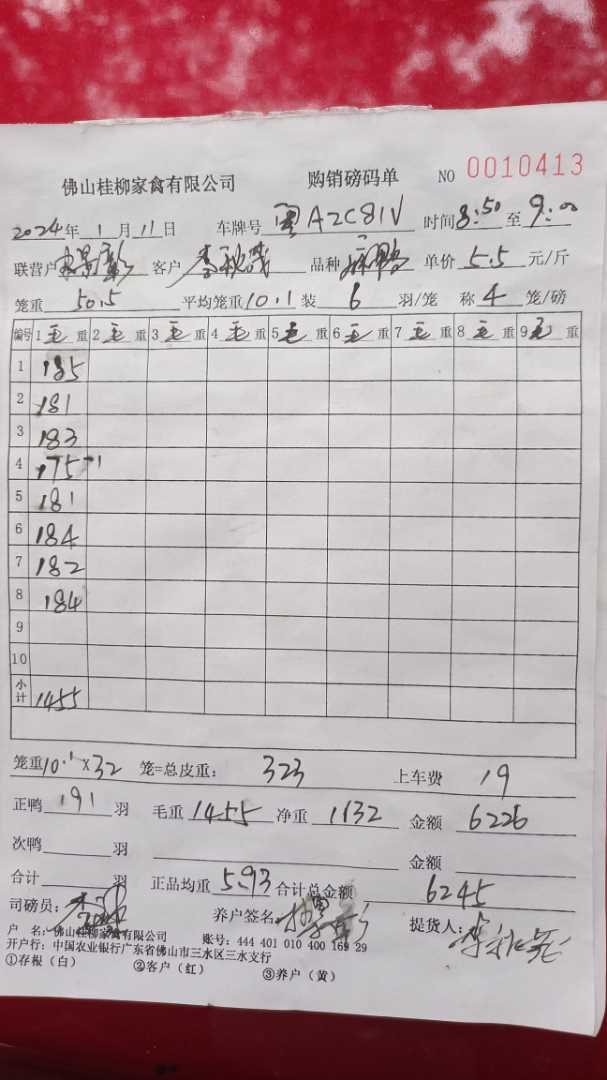 佛山桂柳家禽有限公司 购销磅码单 NO 0010413
2024年 1 月 11 日 车牌号 粤A2C81V 时间 8:50 至 9:00
联营户 客户 李秋茂 品种 麻鸭 单价 5.5 元/斤
笼重 50.5 平均笼重 10.1 装 6 羽/笼 称 4 笼/磅
编号 1 毛 重 2 毛 重 3 毛 重 4 毛 重 5 毛 重 6 毛 重 7 毛 重 8 毛 重 9 毛 重
1 185
2 181
3 183
4 175-1
5 181
6 184
7 182
8 184
9
10
小计 1455
笼重 10.1 X 32 笼=总皮重: 323 上车费 19
正鸭 191 羽 毛重 1455 净重 1132 金额 6226
次鸭 羽 金额
合计 羽 正品均重 5.93 合计总金额 6245
司磅员: 养户签名 提货人:
户 名: 佛山桂柳家禽有限公司 账号: 444 401 010 400 169 29
开户行: 中国农业银行广东省佛山市三水区三水支行
①存根（白） ②客户（红） ③养户（黄）